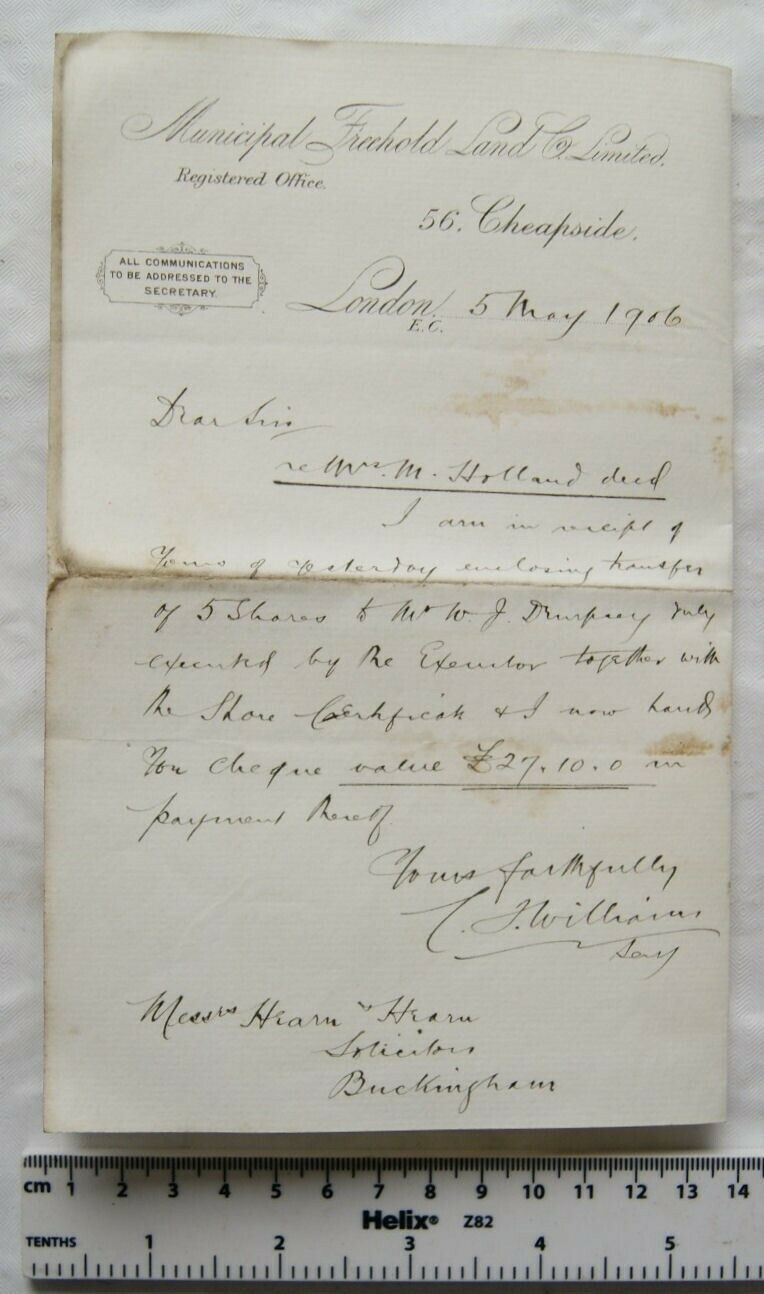 Municipal Freehold Land Co Limited.
Registered Office.
56. Cheapside.
ALL COMMUNICATIONS
TO BE ADDRESSED TO THE
SECRETARY.
London, 5 May 1906
E.C.
Dear Sirs
re Mrs. M. Holland decd
I am in receipt of
Yours of yesterday enclosing transfer
of 5 Shares to Mr W. J. Dempsey duly
executed by the Executor together with
the Share Certificate & I now hand
You cheque value £27.10.0 in
payment thereof.
Yours faithfully
C. F. Williams
Secy
Messrs Hearn & Hearn
Solicitors
Buckingham
cm 1 2 3 4 5 6 7 8 9 10 11 12 13 14
Helix® Z82
TENTHS 1 2 3 4 5